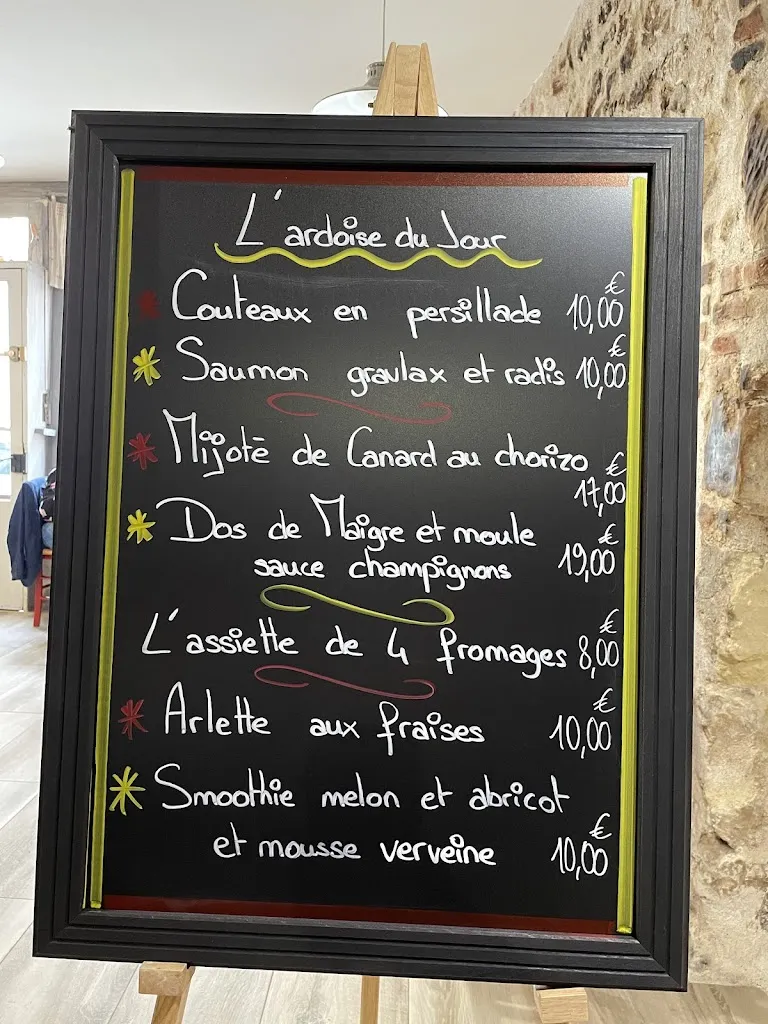 L'ardoise du Jour
* Couteaux en persillade 10,00 €
* Saumon gravlax et radis 10,00 €
* Mijoté de Canard au chorizo
17,00 €
* Dos de Maigre et moule
sauce champignons 19,00 €
L'assiette de 4 fromages 8,00 €
* Arlette aux fraises 10,00 €
* Smoothie melon et abricot
et mousse verveine 10,00 €